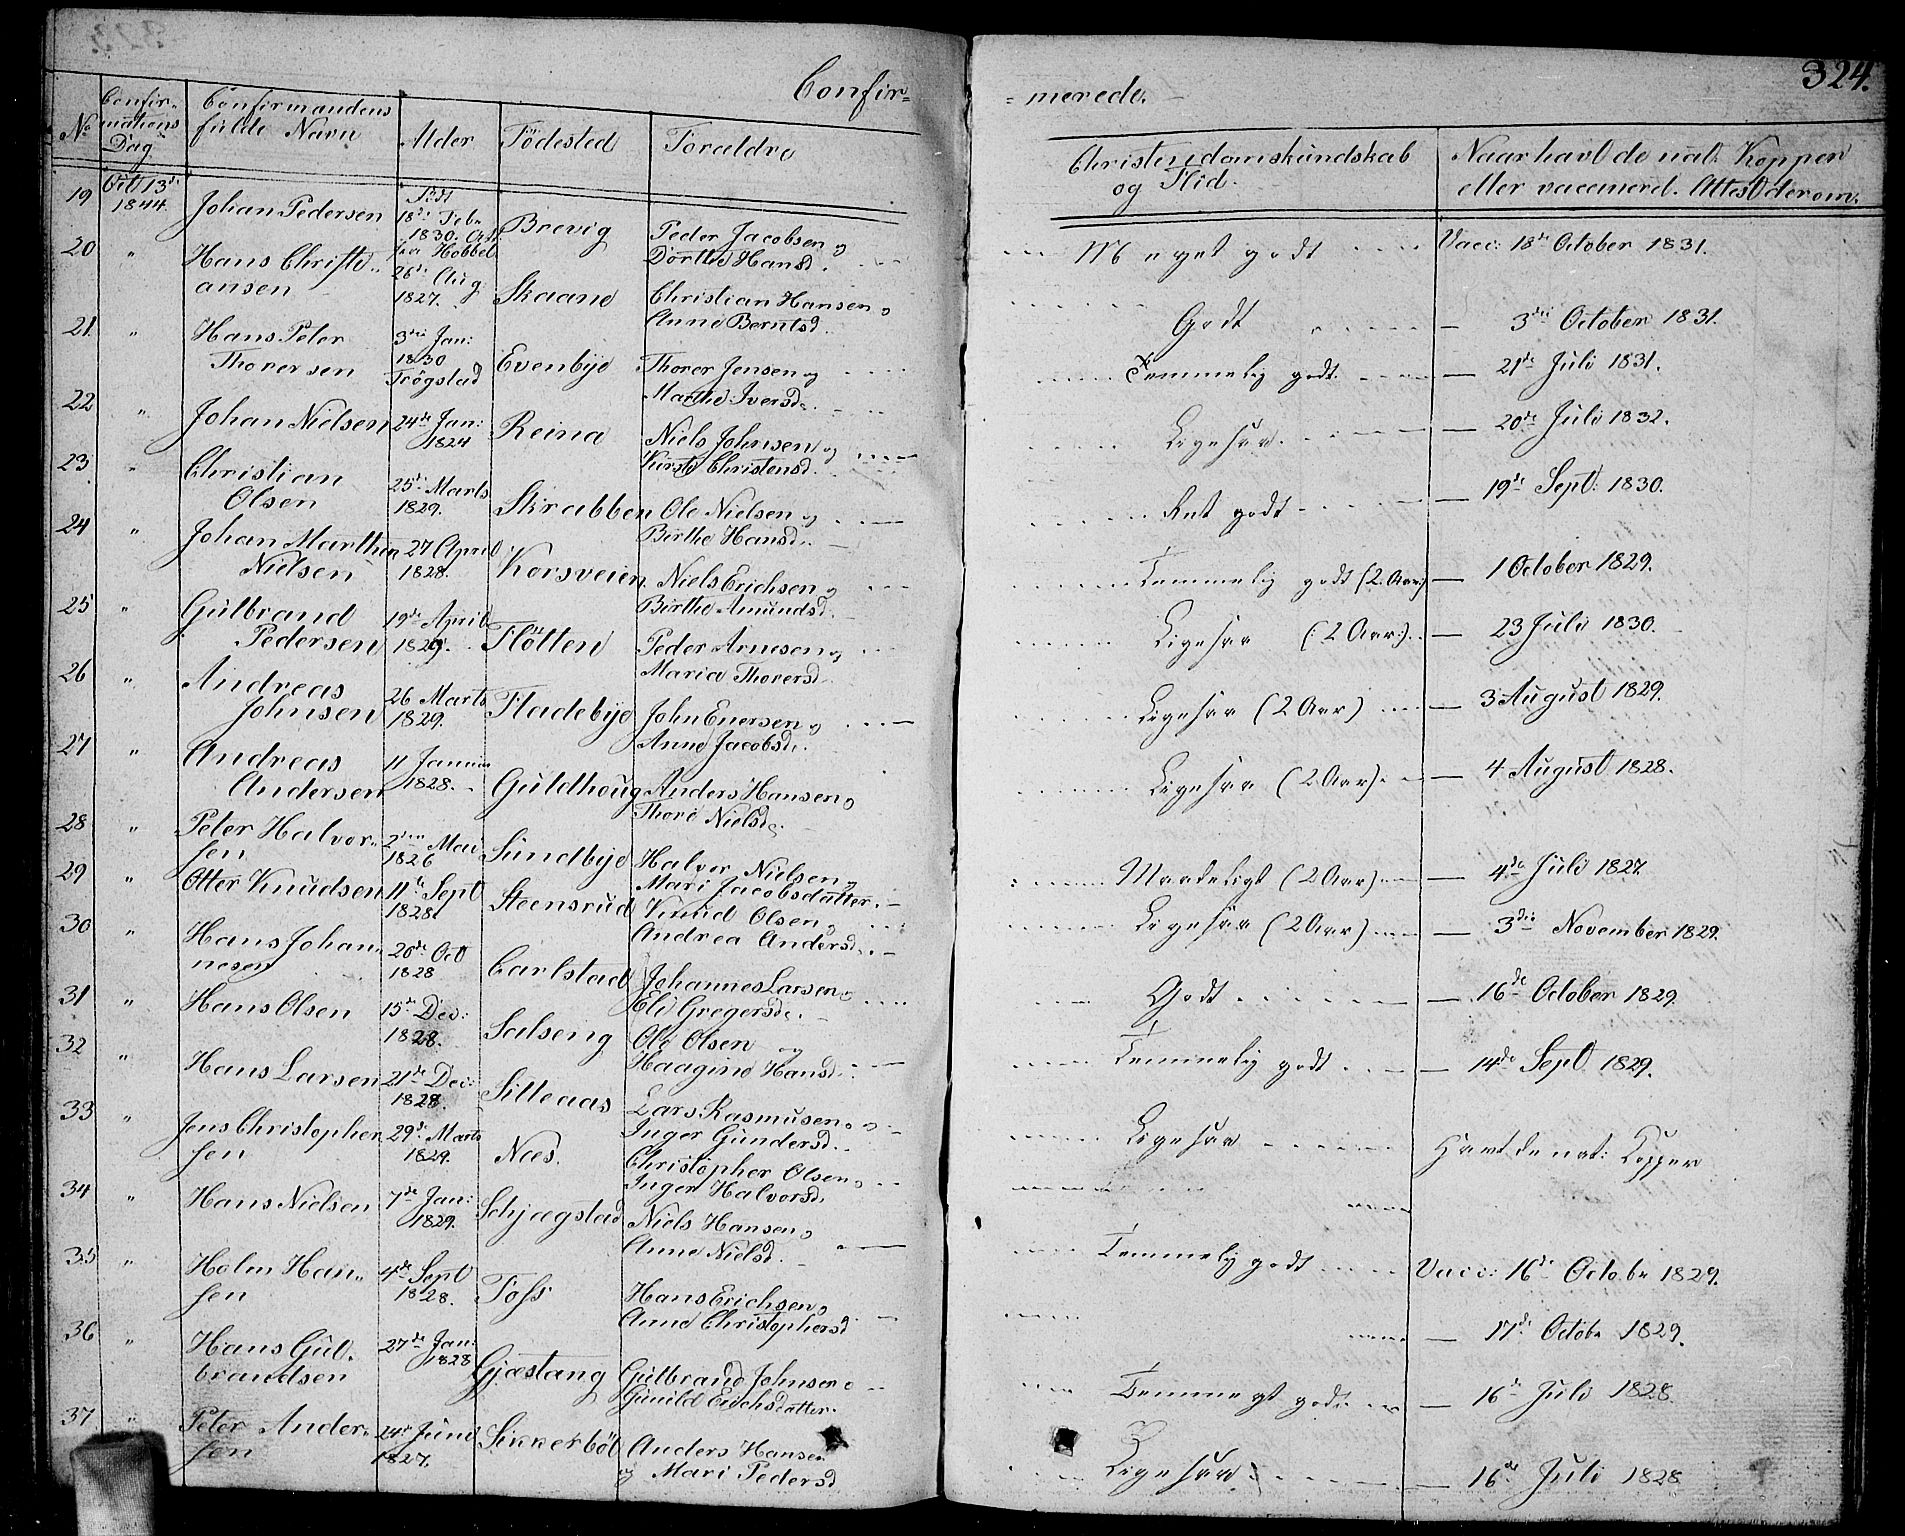 324.
Confir=
=merede.
No
Confir=
mations
Dag
Confirmandens
fulde Navn
Alder
Födested
Forældre
Christendomskundskab
og Flid.
Naar havt de nat: Kopper
eller vaccinered. Attest derom.
19 Oct 13de 1844. Johan Pedersen Födt 18de Feb. 1830. Brevig Peder Jacobsen og
Dorthe Hansd. Meget godt Vacc: 18de October 1831.
20 " Hans Christi=
ansen fra Hobbel 26de Aug 1827. Skaane Christian Hansen og
Anne Berntsd. Godt — 3die October 1831.
21. " Hans Peter
Thorersen 3die Jan: 1830 Trögstad Evenbye Thorer Jensen og
Marthe Iversd. Temmelig godt. — 21de Juli 1831.
22 " Johan Nielsen 24de Jan: 1824 Reina Niels Johnsen og
Kirste Christensd. Ligesaa — 20de Juli 1832.
23 " Christian
Olsen 25de Marts 1829. Skrabben Ole Nielsen og
Birthe Hansd. Ret godt — 19de Sept: 1830.
24 " Johan Marthin
Nielsen 27 April 1828. Korsveien Niels Erichsen og
Birthe Amundsd. Temmelig godt (2 Aar) — 1 October 1829.
25 " Gulbrand
Pedersen 19de April 1829. Flötten Peder Arnesen og
Maria Thorersd. Ligesaa (: 2 Aar:) — 23 Juli 1830.
26 " Andreas
Johnsen 26 Marts 1829. Fladebye John Enersen og
Anne Jacobsd. Ligesaa (2 Aar) — 3 August 1829.
27 " Andreas
Andersen 11 Januar 1828. Guldhoug Anders Hansen og
Thore Nielsd. Ligesaa (2 Aar). — 4 August 1828.
28 " Peter Halvor=
sen 2den Mai 1826 Sundbye Halvor Nielsen og
Mari Jacobsdatter. Maadeligt (2 Aar) — 4de Juli 1827.
29 " Otter Knudsen 11te Sept 1828 Steensrud Knud Olsen og
Andrea Andersd. Ligesaa (2 Aar) — 3die November 1829.
30 " Hans Johan=
nesen 20de Oct 1828 Carlstad Johannes Larsen og
Eli Gregersd. Godt — 16de October 1829.
31 " Hans Olsen 15de Dec: 1828. Salseng Ole Olsen og
Haagine Hansd. Temmelig godt — 14de Sept 1829.
32 " Hans Larsen 21de Dec: 1828. Sitleaas Lars Rasmusen og
Inger Gundersd. Ligesaa Havt de nat: Kopper
33 " Jens Christopher
sen 29de Marts 1829. Næs. Christopher Olsen og
Inger Halvorsd.
34 " Hans Nielsen 7de Jan: 1829. Schjægstad Niels Hansen og
Anne Nielsd. Temmelig godt Vacc: 16de Octobr 1829.
35 " Holm Han=
sen 4de Sept 1828. Foss Hans Erichsen og
Anne Christophersd. — 17de Octobr 1829.
36 " Hans Gul=
brandsen 27de Jan: 1828 Gjæstang Gulbrand Johnsen og
Gunild Erichsdatter. Temmelig godt — 16de Juli 1828.
37. " Peter Ander=
sen 24de Juni 1827. Sikkerböl Anders Hansen
og Mari Pedersd Ligesaa — 16de Juli 1828.